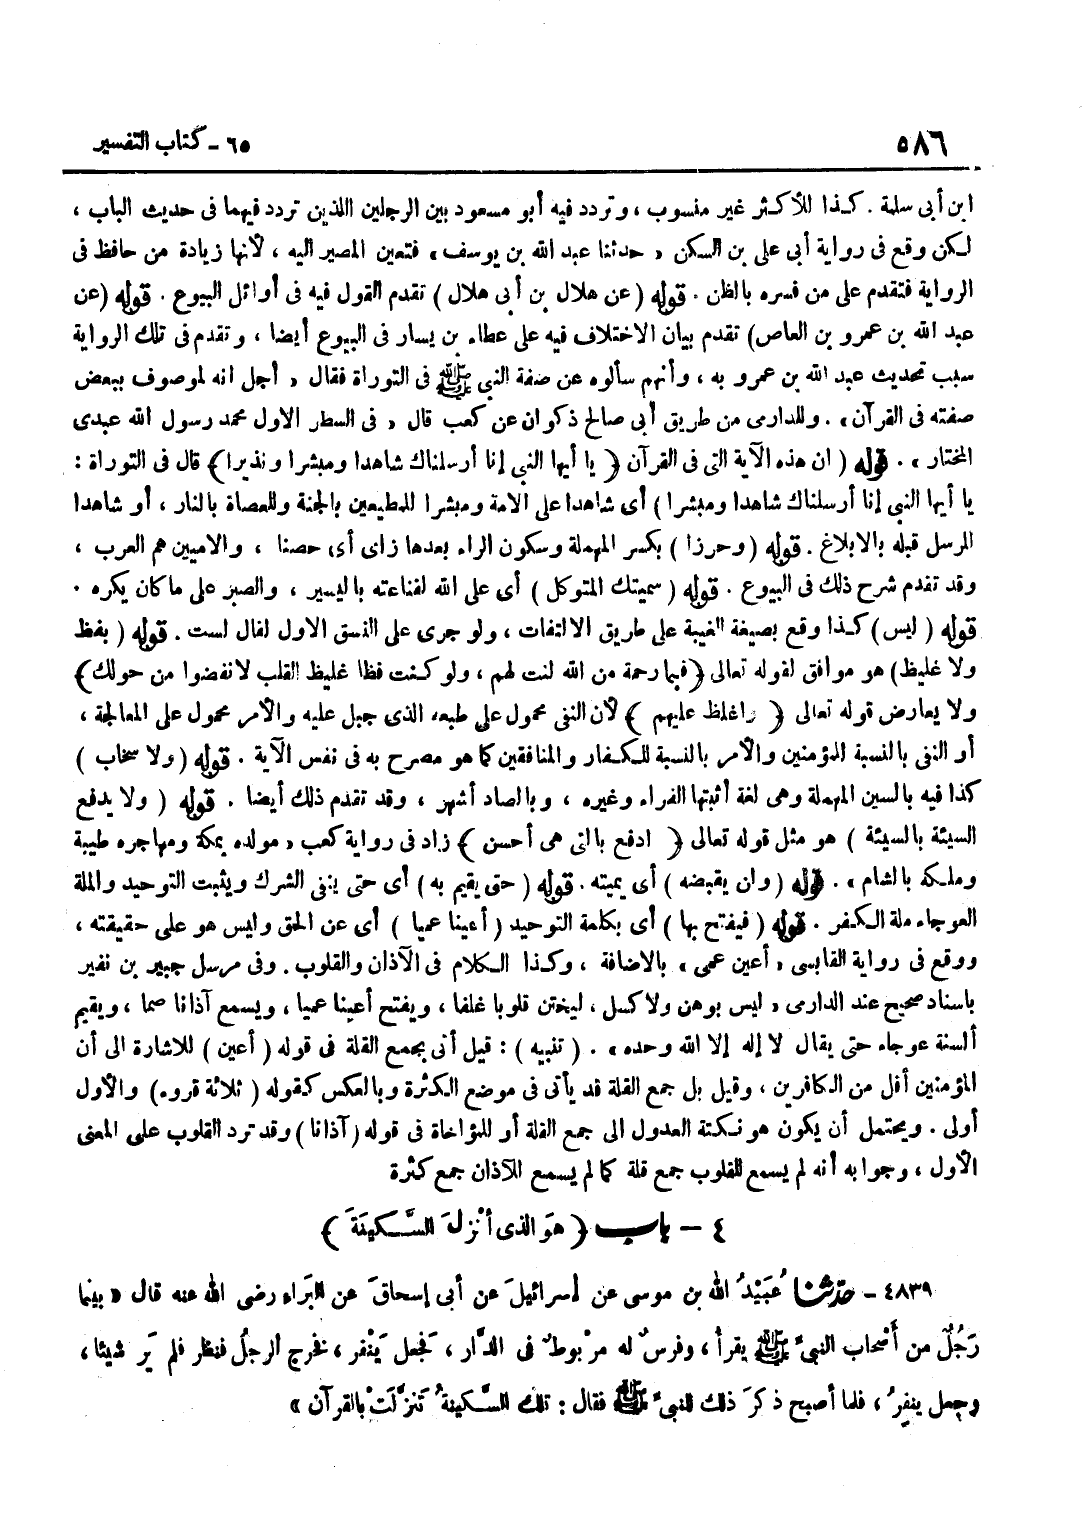 ٥٨٦
٦٥ - كتاب التفسير
ابن أبى سلمة . كذا للأكثر غير منسوب ، وتردد فيه أبو مسعود بين الرجلين اللذين تردد فيهما فى حديث الباب ،
لكن وقع فى رواية أبى على بن السكن « حدثنا عبد الله بن يوسف » فتعين المصير اليه ، لأنها زيادة من حافظ فى
الرواية فتقدم على من فسره بالظن . قوله ( عن هلال بن أبى هلال ) تقدم القول فيه فى أوائل البيوع . قوله (عن
عبد الله بن عمرو بن العاص) تقدم بيان الاختلاف فيه على عطاء بن يسار فى البيوع أيضا ، وتقدم فى تلك الرواية
سبب تحديث عبد الله بن عمرو به ، وأنهم سألوه عن صفة النبى ﷺ فى التوراة فقال « أجل انه لموصوف ببعض
صفته فى القرآن » . وللدارمى من طريق أبى صالح ذكوان عن كعب قال « فى السطر الاول محمد رسول الله عبدى
المختار » . قوله ( ان هذه الآية التى فى القرآن ﴿ يا أيها النبى إنا أرسلناك شاهدا ومبشرا ونذيرا ﴾ قال فى التوراة :
يا أيها النبى إنا أرسلناك شاهدا ومبشرا ) أى شاهدا على الامة ومبشرا للمطيعين بالجنة وللعصاة بالنار ، أو شاهدا
المرسل قبله بالابلاغ . قوله ( وحرزا ) بكسر المهملة وسكون الراء بعدها زاى أى حصنا ، والاميين هم العرب ،
وقد تقدم شرح ذلك فى البيوع . قوله ( سميتك المتوكل ) أى على الله لقناعته باليسير ، والصبر على ما كان يكره .
قوله ( ليس ) كذا وقع بصيغة الغيبة على طريق الالتفات ، ولو جرى على النسق الاول لقال لست . قوله ( بفظ
ولا غليظ) هو موافق لقوله تعالى ﴿ فبما رحمة من الله لنت لهم ، ولو كنت فظا غليظ القلب لانفضوا من حولك ﴾
ولا يعارض قوله تعالى ﴿ واغلظ عليهم ﴾ لأن النفى محمول على طبعه الذى جبل عليه والأمر محمول على المعالجة ،
أو النفى بالنسبة للمؤمنين والأمر بالنسبة للكفار والمنافقين كما هو مصرح به فى نفس الآية . قوله ( ولا سخاب )
كذا فيه بالسين المهملة وهى لغة أثبتها الفراء وغيره ، وبالصاد أشهر ، وقد تقدم ذلك أيضا . قوله ( ولا يدفع
السيئة بالسيئة ) هو مثل قوله تعالى ﴿ ادفع بالتى هى أحسن ﴾ زاد فى رواية كعب « مولده بمكة ومهاجره طيبة
وملكه بالشام » . قوله ( وان يقبضه ) أى يميته . قوله ( حتى يقيم به ) أى حتى ينفى الشرك ويثبت التوحيد والملة
العوجاء ملة الكفر . قوله ( فيفتح بها ) أى بكلمة التوحيد ( أعينا عميا ) أى عن الحق وليس هو على حقيقته ،
ووقع فى رواية القابسى « أعين عمى » بالاضافة ، وكذا الكلام فى الآذان والقلوب . وفى مرسل جبير بن نفير
باسناد صحيح عند الدارمى « ليس بوهن ولا كسل ، ليختن قلوبا غلفا ، ويفتح أعينا عميا ، ويسمع آذانا صما ، ويقيم
ألسنة عوجاء حتى يقال لا إله إلا الله وحده » . ( تنبيه ) : قيل أتى بجمع القلة فى قوله ( أعين ) للاشارة الى أن
المؤمنين أقل من الكافرين ، وقيل بل جمع القلة قد يأتى فى موضع الكثرة وبالعكس كقوله ( ثلاثة قروء ) والأول
أولى . ويحتمل أن يكون هو نكتة العدول الى جمع القلة أو للمؤاخاة فى قوله ( آذانا ) وقد ترد القلوب على المعنى
الأول ، وجوابه أنه لم يسمع للقلوب جمع قلة كما لم يسمع للآذان جمع كثرة
٤ - باب ﴿ هوَ الذى أنْزلَ السَّكينَةَ ﴾
٤٨٣٩ - حدّثنا عُبَيْدُ الله بن موسى عن إسرائيلَ عن أبى إسحاقَ عن البَراء رضى الله عنه قال « بينما
رَجُلٌ من أَصْحاب النبىِّ ﷺ يقرأ ، وفرسٌ له مرْبوطٌ فى الدَّار ، فجعل يَنْفر ، فخرج الرجلُ فنظر فلم يَر شيئا ،
وجعل ينفِرُ ، فلما أصبح ذكرَ ذلك للنبىِّ ﷺ فقال : تلك السَّكينةُ تَنزَّلَتْ بالقرآن »